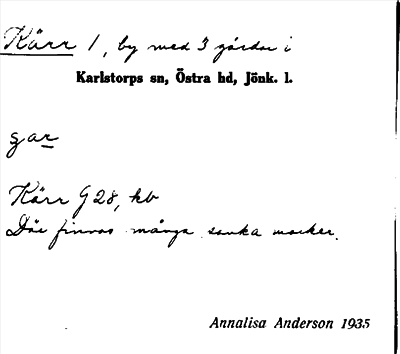 Kärr 1, by med 3 gårdar i
Karlstorps sn, Östra hd, Jönk. l.
ɡar
Kärr G 28, kb
Där finnas många sanka marker.
Annalisa Anderson 1935